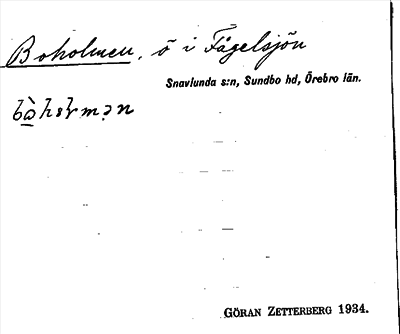 Boholmen, ö i Fågelsjön
Snavlunda s:n, Sundbo hd, Örebro län.
GÖRAN ZETTERBERG 1934.